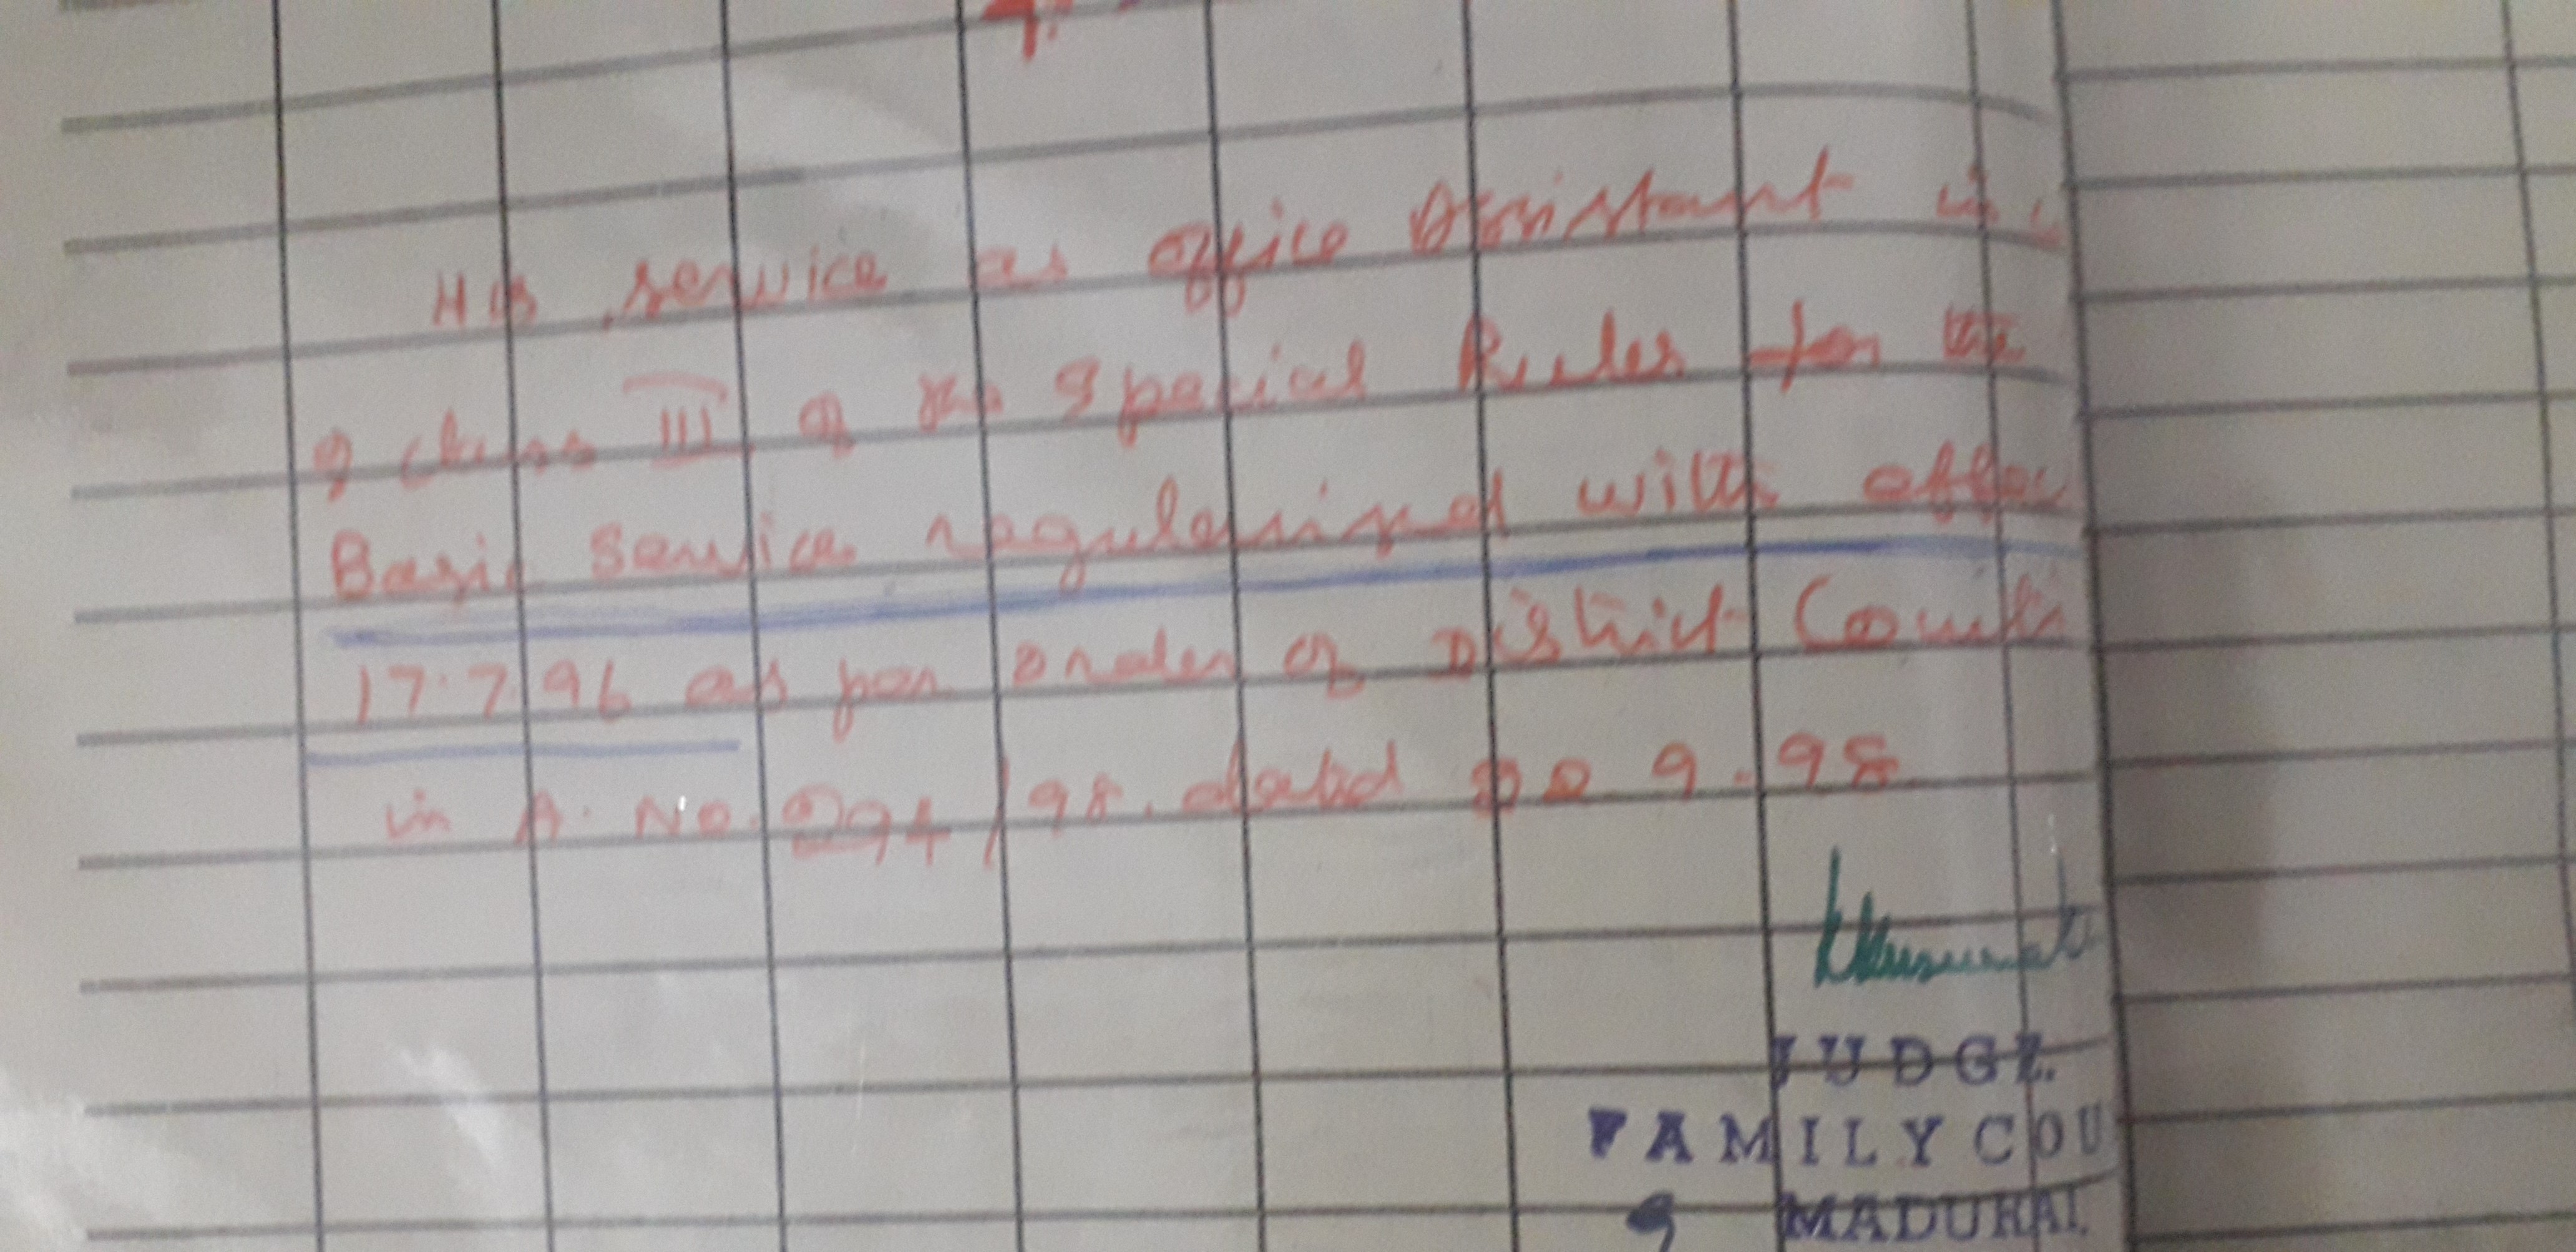 His service as office Assistant in
of class III of the Special Rules for the
Basic Service regularised with effec
17.7.96 as per order of District Court
in A. No. 294/98. dated 9.98
JUDGE.
FAMILY COU
MADURAI.